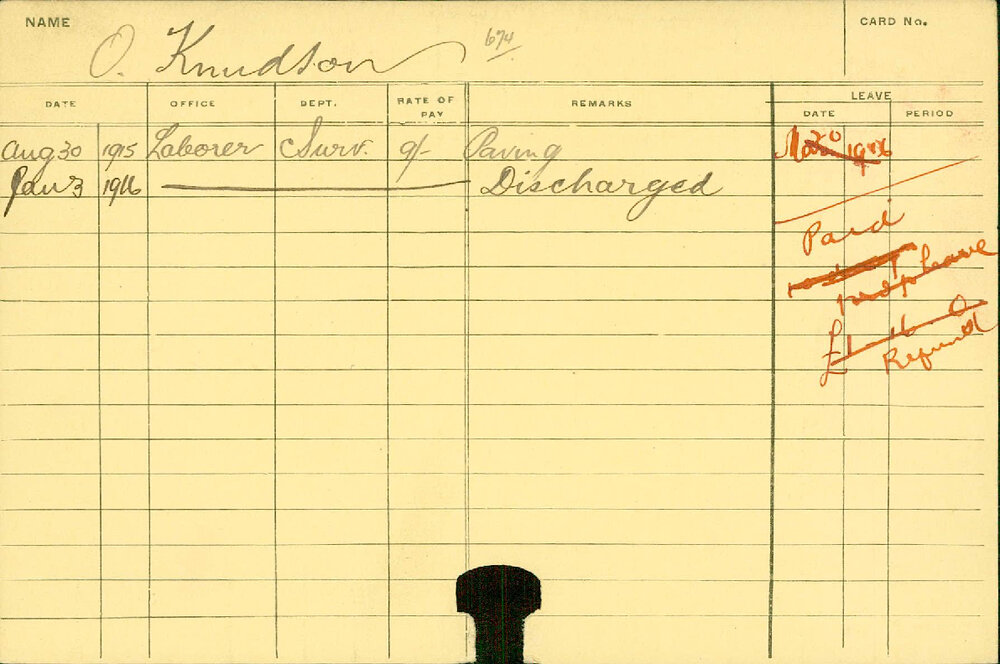 NAME
CARD No.
O. Knudson 674
DATE OFFICE DEPT. RATE OF PAY REMARKS LEAVE
DATE PERIOD
Aug 30 1915 Laborer Surv. 9/- Paving
Jan 3 1916 Discharged
1916
Paid
leave
£1-16-0
Refund